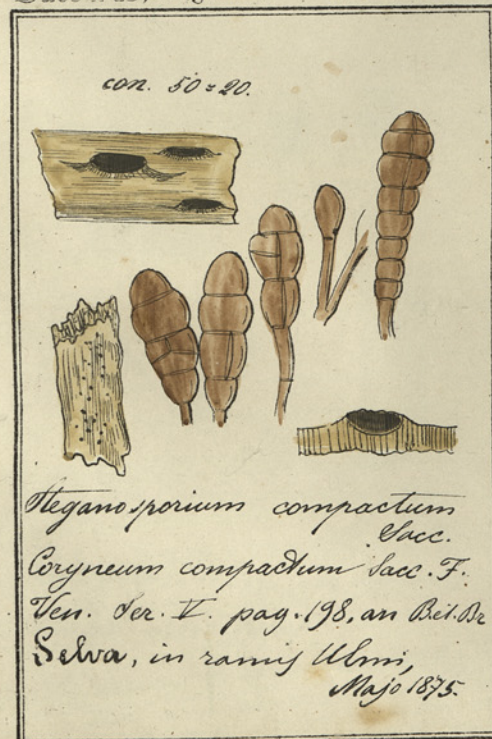 con. 50 = 20.
Steganosporium compactum
Sacc.
Coryneum compactum Sacc. F.
Ven. Ser. V. pag. 198, an Bet. Br
Selva, in ramis Ulmi,
Majo 1875.